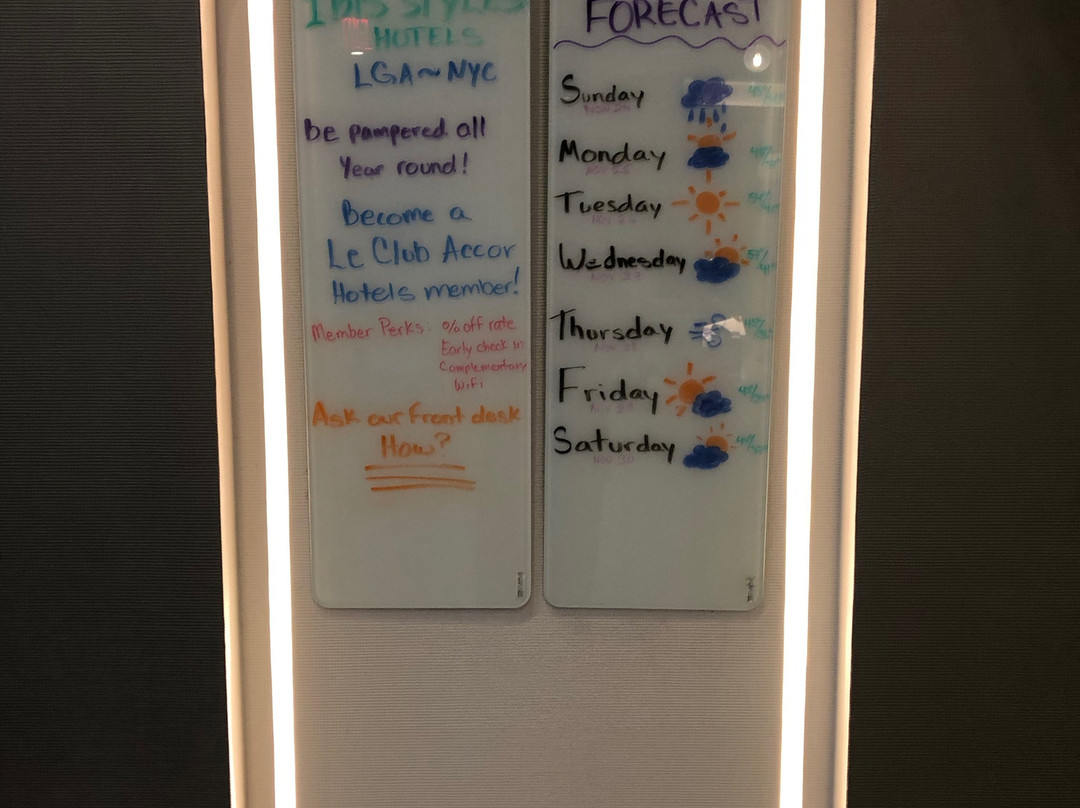 IBIS STYLES
HOTELS
LGA~NYC
be pampered all
Year round!
Become a
Le Club Accor
Hotels member!
Member Perks: % off rate
Early check in
Complementary
WiFi
Ask our front desk
How?
FORECAST
Sunday
Nov 24
Monday
Nov 25
Tuesday
Nov 26
Wednesday
Nov 27
Thursday
Nov 28
Friday
Nov 29
Saturday
Nov 30